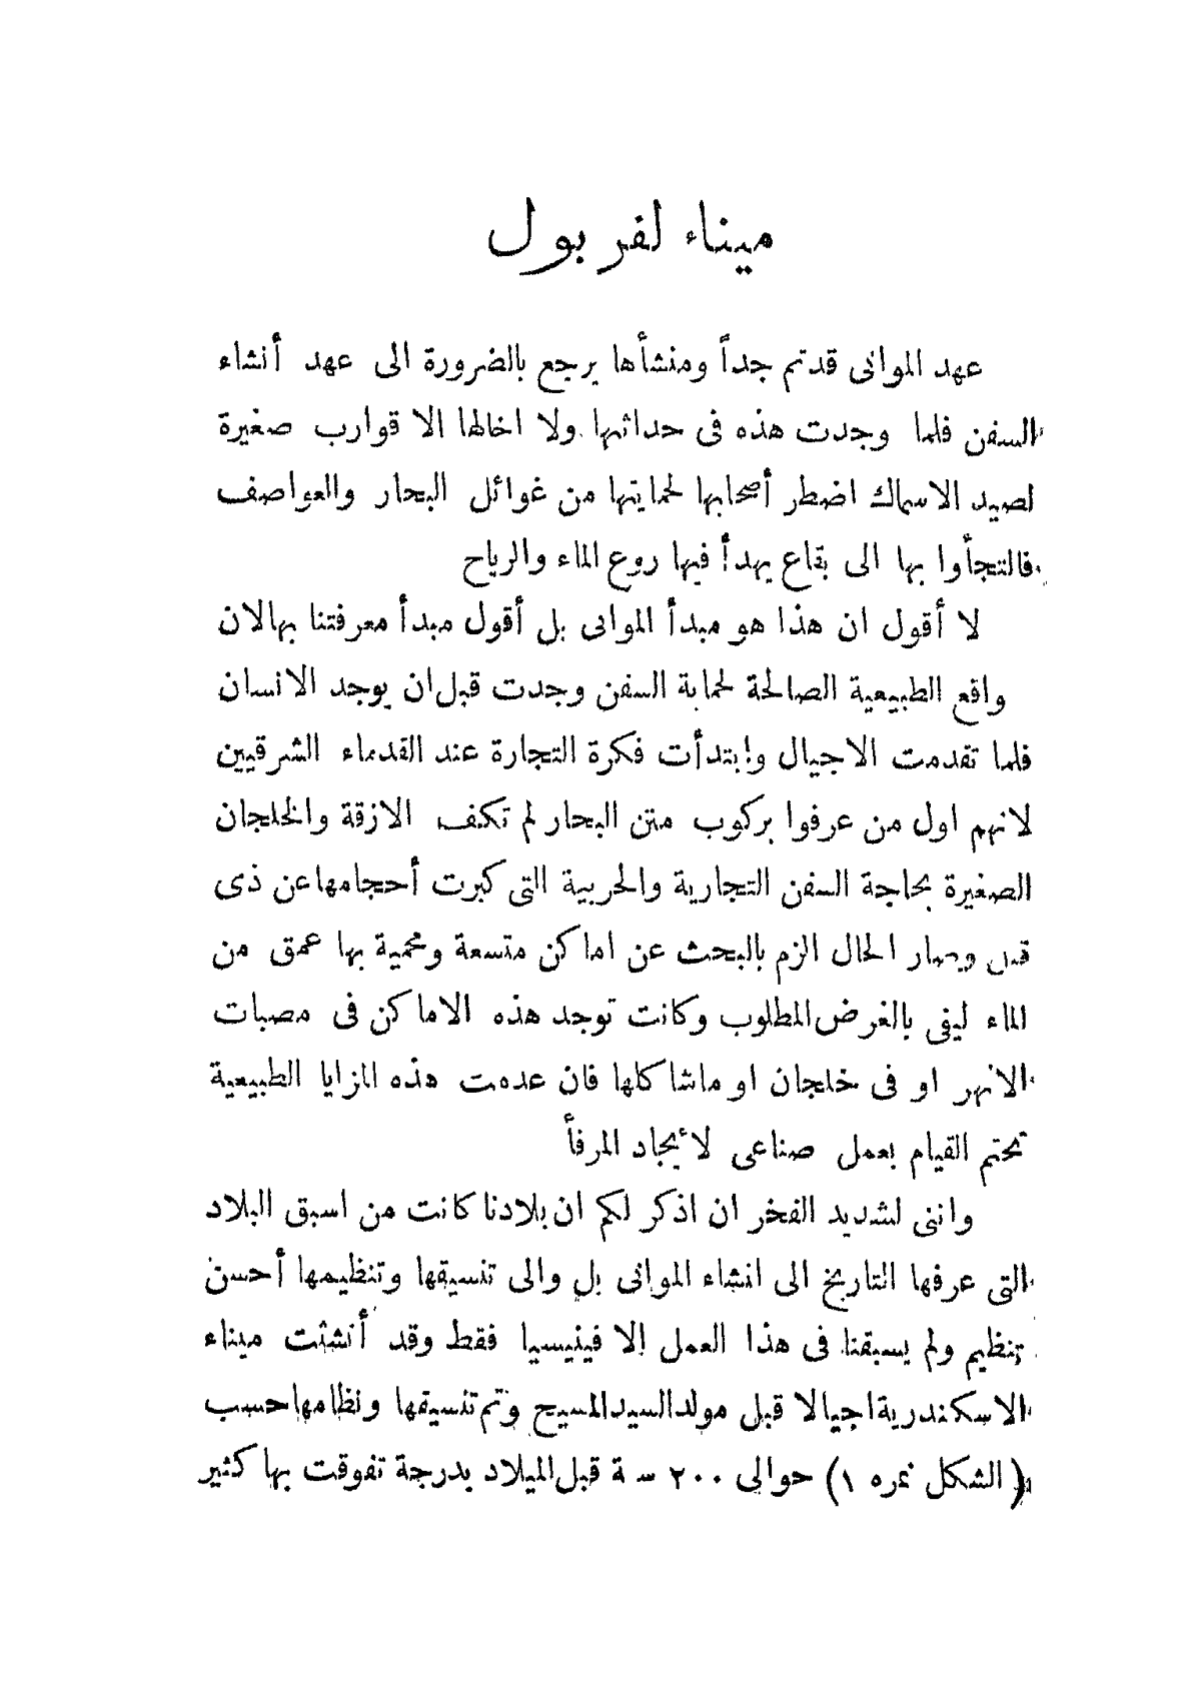 ميناء لفربول
عهد الموانى قديم جداً ومنشأها يرجع بالضرورة الى عهد أنشاء
السفن فلما وجدت هذه فى حداثتها ولا اخالها الا قوارب صغيرة
لصيد الاسماك اضطر أصحابها لحمايتها من غوائل البحار والعواصف
فالتجأوا بها الى بقاع يهدأ فيها روع الماء والرياح
لا أقول ان هذا هو مبدأ الموانى بل أقول مبدأ معرفتنا بهالان
واقع الطبيعية الصالحة لحماية السفن وجدت قبل ان يوجد الانسان
فلما تقدمت الاجيال وابتدأت فكرة التجارة عند القدماء الشرقيين
لانهم اول من عرفوا بركوب متن البحار لم تكف الازقة والخلجان
الصغيرة بحاجة السفن التجارية والحربية التى كبرت أحجامها عن ذى
قبل وصار الحال الزم بالبحث عن اماكن متسعة ومحمية بها عمق من
الماء ليفى بالغرض المطلوب وكانت توجد هذه الاماكن فى مصبات
الانهر او فى خلجان او ماشاكلها فان عدمت هذه المزايا الطبيعية
تحتم القيام بعمل صناعى لأيجاد المرفأ
واننى لشديد الفخر ان اذكر لكم ان بلادنا كانت من اسبق البلاد
التى عرفها التاريخ الى انشاء الموانى بل والى تنسيقها وتنظيمها أحسن
تنظيم ولم يسبقنا فى هذا العمل إلا فينيسيا فقط وقد أنشئت ميناء
الاسكندرية اجيالا قبل مولد السيد المسيح وتم تنسيقها ونظامها حسب
(الشكل نمره ١) حوالى ٢٠٠ سـ ة قبل الميلاد بدرجة تفوقت بها كثير